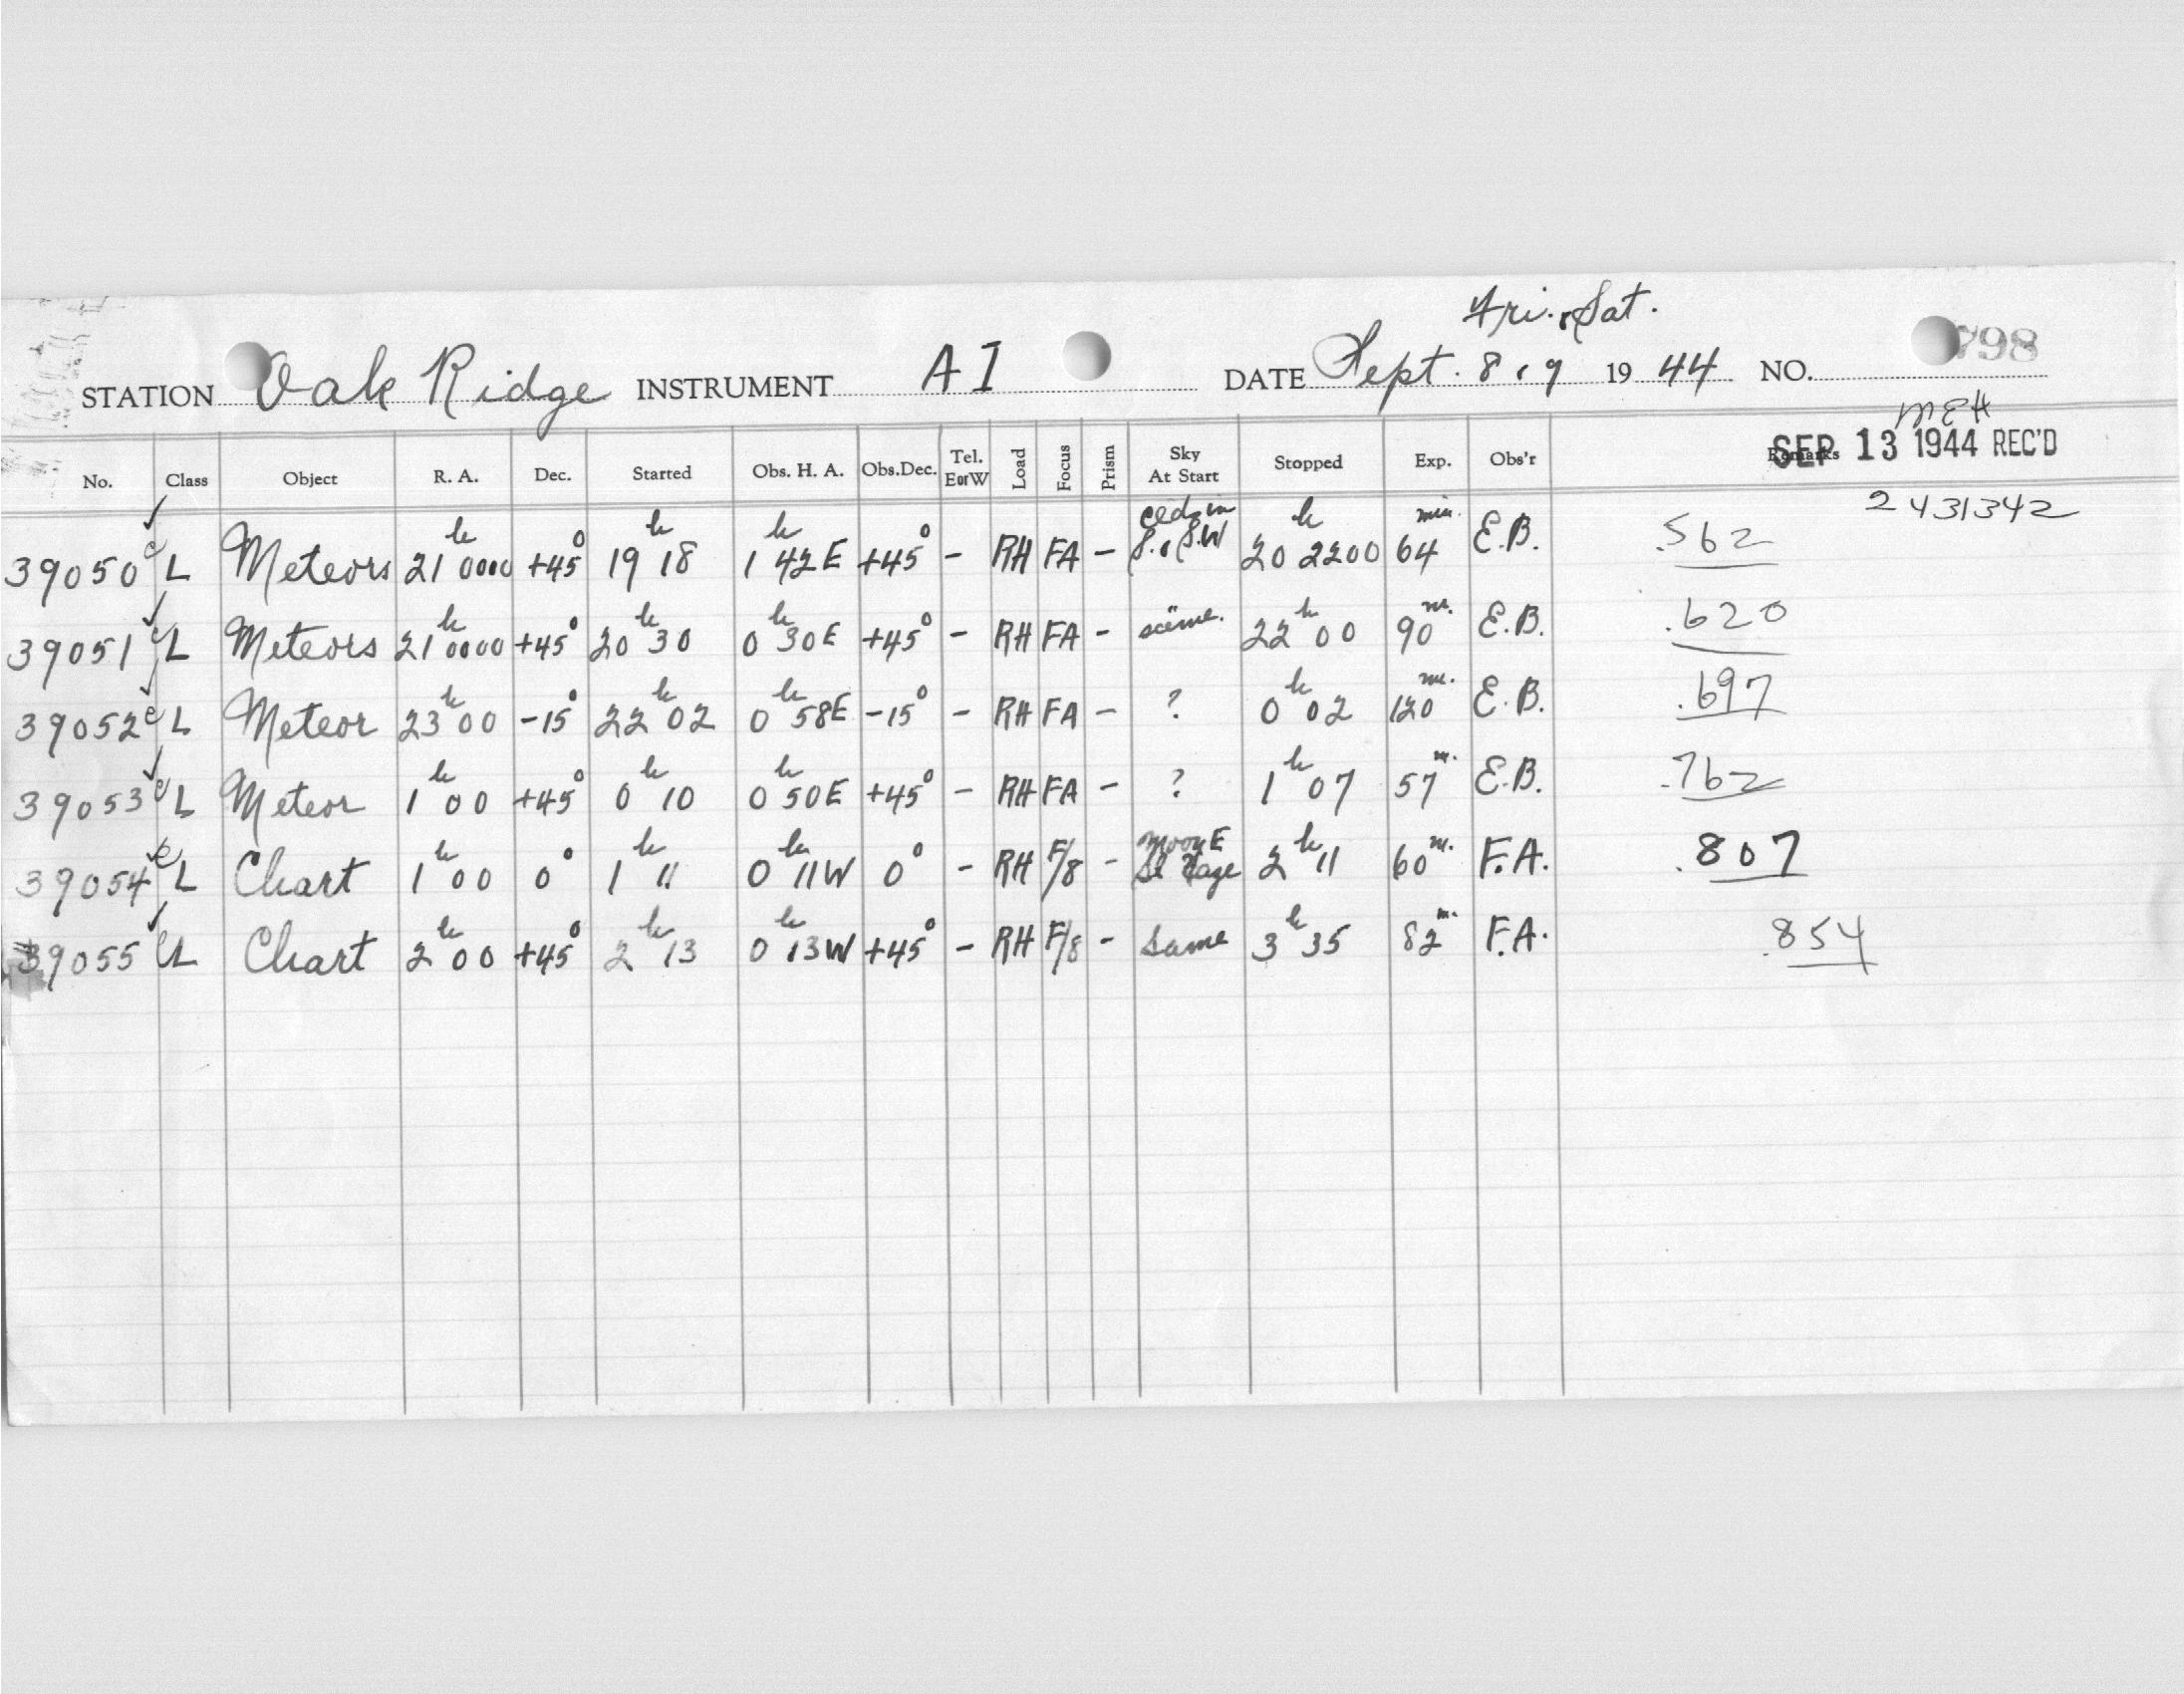 Fri., Sat.
STATION Oak Ridge INSTRUMENT AI DATE Sept. 8, 9 1944 NO. 798
MEH
SEP 13 1944 REC'D
No. Class Object R. A. Dec. Started Obs. H. A. Obs.Dec. Tel. EorW Load Focus Prism Sky At Start Stopped Exp. Obs'r Remarks
2431342
39050 c L Meteors 21h 0000 +45° 19h 18 1h 42E +45° - RH FA - clds in S., S.W 20h 2200 64 min. E.B. .562
39051 c L Meteors 21h 0000 +45° 20h 30 0h 30E +45° - RH FA - same. 22h 00 90m. E.B. .620
39052 c L Meteor 23h 00 -15° 22h 02 0h 58E -15° - RH FA - ? 0h 02 120m. E.B. .697
39053 c L Meteor 1h 00 +45° 0h 10 0h 50E +45° - RH FA - ? 1h 07 57m. E.B. .762
39054 c L Chart 1h 00 0° 1h 11 0h 11W 0° - RH F/8 - Moon E Sl Haze 2h 11 60m. F.A. .807
39055 c L Chart 2h 00 +45° 2h 13 0h 13W +45° - RH F/8 - Same 3h 35 82m. F.A. .854